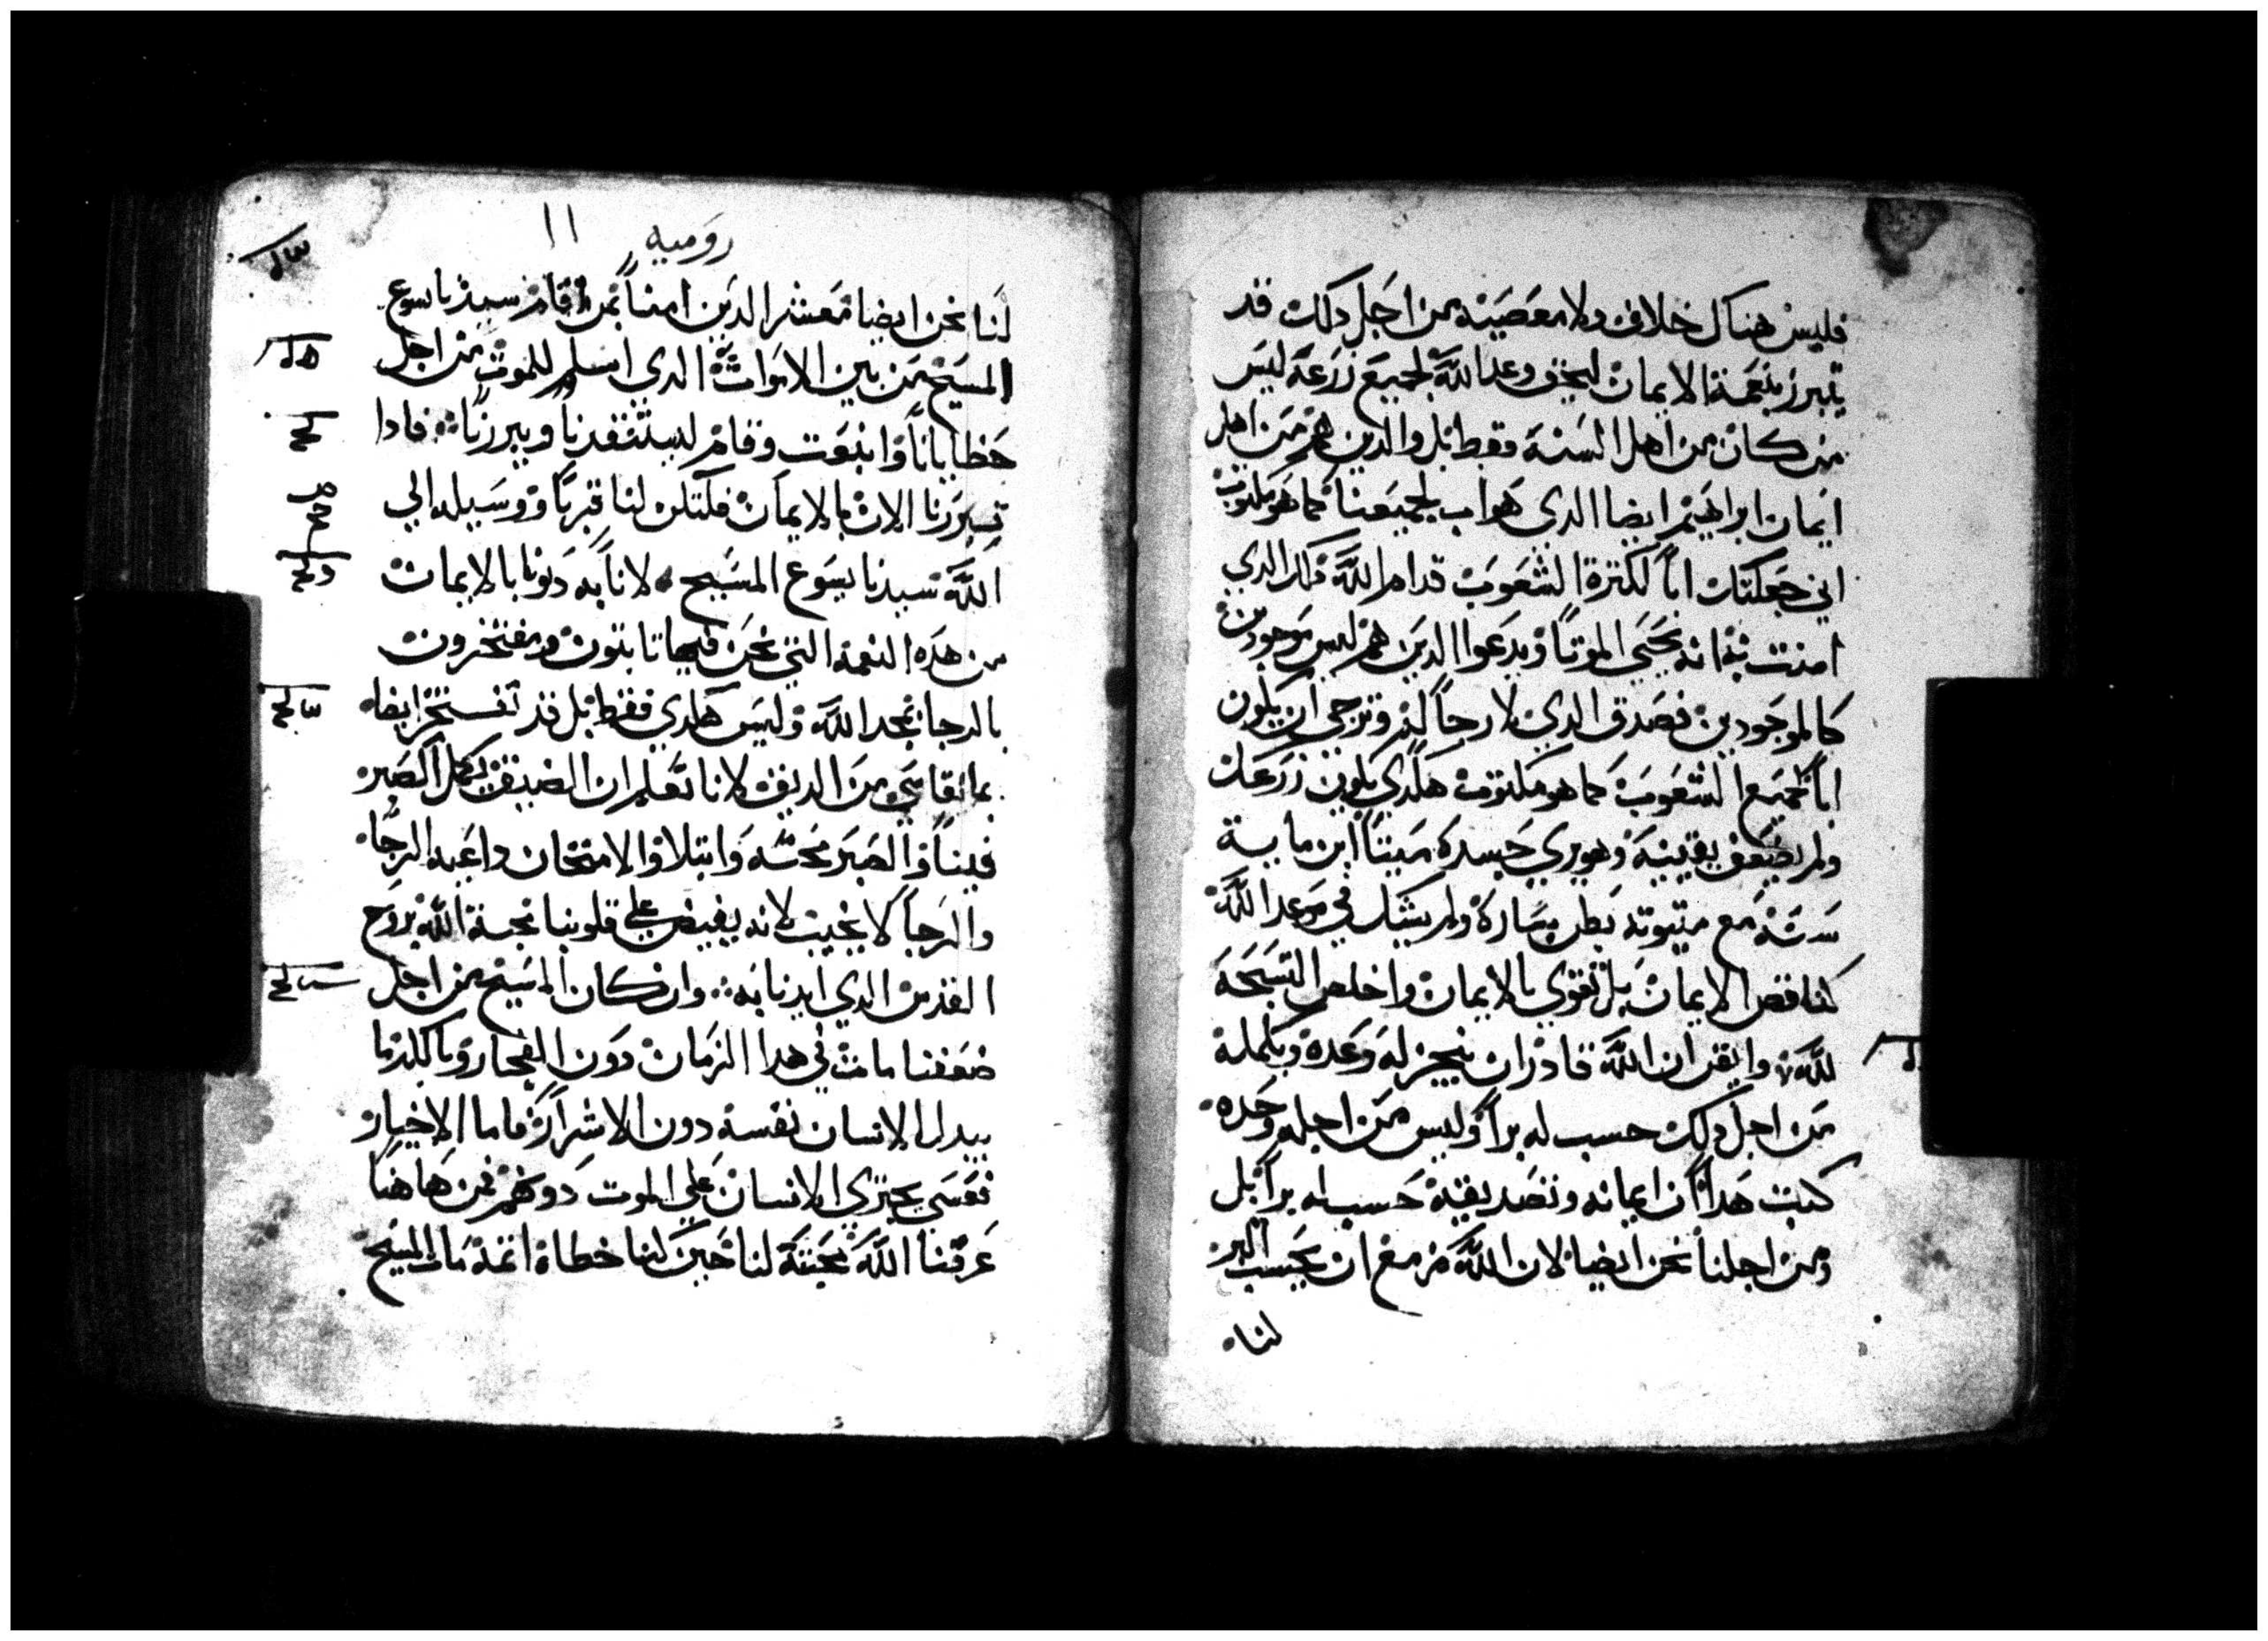 فليس هناك خلاف ولا معصيه من اجل دلك قد
يتبرر بنعمة الايمان ليحق وعد الله لجميع زرعه ليس
من كان من اهل السنه فقط بل والدين هم من اهل
ايمان ابراهيم ايضا الدي هو اب لجميعنا كما هو مكتوب
اني جعلتك اباً لكترة الشعوب قدام الله دلك الدي
امنت به انه يحيي الموتا ويدعوا الدين هم ليس موجودين
كالموجودين فصدق الدي لا رجاً له وترجي ان يكون
اباً لجميع الشعوب كما هو مكتوب هكدي يكون زرعك
ولم يضعف يقينه وهو يري جسده ميتاً ابن ماية
سنه مع ميتوته بطن ساره ولم يشك في موعد الله
كناقص الايمان بل تقوي بالايمان واخلص التسبحه
لله وايقن ان الله قادر ان ينجز له وعده ويكمله
من اجل دلك حسب له براً وليس من اجله وحده
كتب هدا ان ايمانه وتصديقه حسب له براً بل
ومن اجلنا نحن ايضا لان الله مزمع ان يحسب البر
لنا
روميه ١١
لنا نحن ايضا معشر الدين امنا بمن اقام سيدنا يسوع
المسيح من بين الاموات الدي اسلم للموت من اجل
خطايانا وانبعت وقام ليستنقدنا ويبررنا فادا
تبررنا الان بالايمان فلتكن لنا قرباً ووسيله الي
الله سيدنا يسوع المسيح لانا به دنونا بالايمان
من هده النعمه التي نحن فيها تابتون ومفتخرون
بالرجا بمجد الله وليس هكدي فقط بل قد نفتخر ايضا
بما نقاسي من الضيق لانا نعلم ان الضيق يكمل الصبر
فينا والصبر محنه وابتلا والامتحان داعيه الرجا
والرجا لا يخيب لانه يفيض علي قلوبنا محبة الله بروح
القدس الدي ايدنا به وان كان المسيح من اجل
ضعفنا مات في هدا الزمان دون الفجار وبالكد ما
يبدل الانسان نفسه دون الاشرار فاما الاخيار
فعسي يجتري الانسان علي الموت دونهم فمن هاهنا
عرفنا الله محبته لنا حين كنا خطاة اتمة مات المسيح